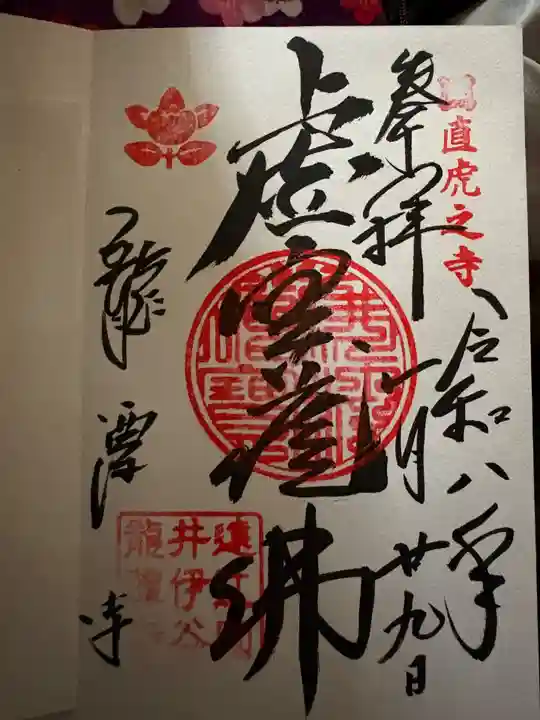 直虎之寺
奉拝
令和八年
一月廿九日
虚空蔵佛
龍潭寺
遠江国
井伊谷
龍潭寺